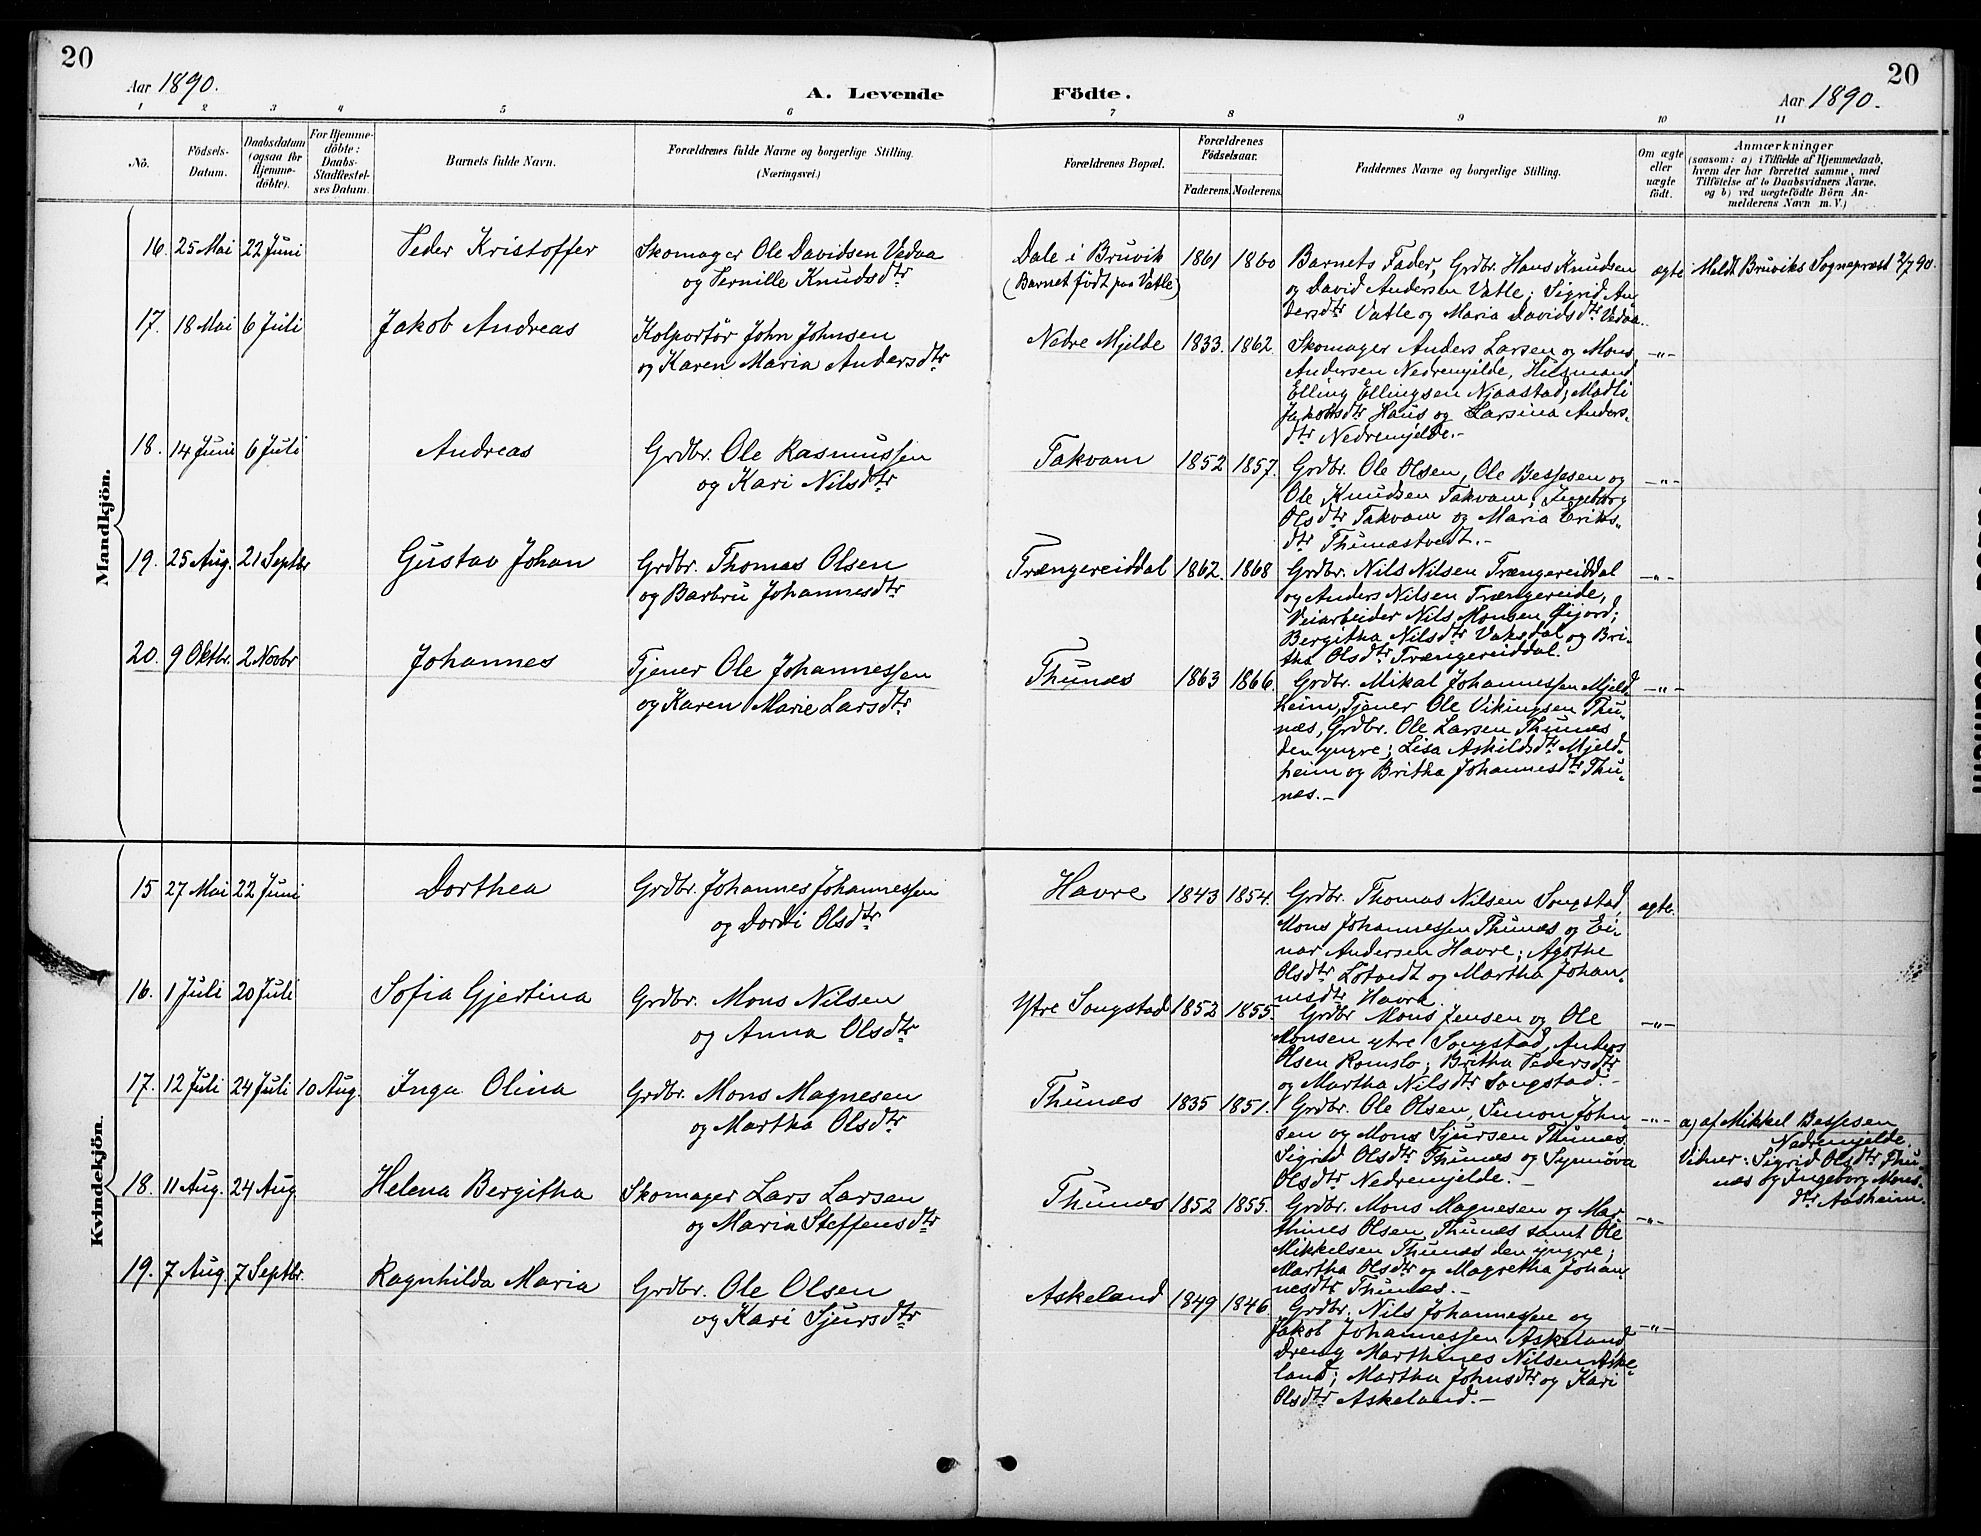 20
Aar 1890.
A. Levende
Födte.
Aar 1890.
20
1 2 3 4 5 6 7 8 9 10 11
No.
Födsels-
Datum.
Daabsdatum
(ogsaa for
Hjemme-
döbte).
For Hjemme-
döbte:
Daabs-
Stadfæstel-
ses Datum.
Barnets fulde Navn.
Forældrenes fulde Navne og borgerlige Stilling.
(Næringsvei.)
Forældrenes Bopæl.
Forældrenes
Födselsaar.
Faderens. Moderens.
Faddernes Navne og borgerlige Stilling.
Om ægte
eller
uægte
födt.
Anmærkninger
(saasom: a) i Tilfælde af Hjemmedaab,
hvem der har forrettet samme, med
Tilföielse af to Daabsvidners Navne.
og b) ved uægtefödte Börn An-
melderens Navn m. V.)
Mandkjön.
16. 25 Mai 22 Juni Peder Kristoffer
Skomager Ole Davidsen Vedaa
og Pernille Knudsdtr
Dale i Bruvik
(Barnet födt paa Vatle)
1861 1860
Barnets Fader, Grdbr. Hans Knudsen
og David Andersen Vatle; Sigrid An-
dersdtr Vatle og Maria Davidsdtr Vedaa.
ægte Meldt Bruviks Sognepræst 2/7 90.
17. 18 Mai 6 Juli Jakob Andreas
Kolportör John Johnsen
og Karen Maria Andersdtr
Nedre Mjelde 1833. 1862.
Skomager Anders Larsen og Mons
Andersen Nedremjelde, Husmand
Elling Ellingsen Njaastad; Madli
Jakobsdtr Haus og Larsina Anders-
dtr Nedremjelde.-
-"-
18. 14 Juni 6 Juli Andreas
Grdbr. Ole Rasmussen
og Kari Nilsdtr
Takvam 1852 1857.
Grdbr. Ole Olsen, Ole Bessesen og
Ole Knudsen Takvam; Ingeborg
Olsdtr Takvam og Maria Eriks-
dtr Thunæstvedt.-
-"-
19. 25 Aug. 21 Septbr Gustav Johan
Grdbr. Thomas Olsen
og Barbru Johannesdtr
Trængereiddal 1862. 1868
Grdbr. Nils Nilsen Trængereiddal
og Anders Nilsen Trængereide,
Veiarbeider Nils Monsen Eijord;
Bergitha Nilsdtr Vaksdal og Bri-
tha Olsdtr Trængereiddal.
-"-
20. 9 Oktbr. 2 Novbr Johannes
Tjener Ole Johannessen
og Karen Marie Larsdtr
Thunæs 1863 1866.
Grdbr. Mikal Johannessen Mjeld-
heim, Tjener Ole Vikingsen Thu-
næs, Grdbr. Ole Larsen Thunæs
den yngre; Lisa Askildsdtr Mjeld-
heim og Britha Johannesdtr Thu-
næs.-
-"-
Kvindekjön.
15 27 Mai 22 Juni Dorthea
Grdbr. Johannes Johannessen
og Dordi Olsdtr
Havre 1843 1854.
Grdbr. Thomas Nilsen Songstad,
Mons Johannessen Thunæs og Ei-
nar Andersen Havre; Agathe
Olsdtr Lötvedt og Martha Johan-
nesdtr Havre.
ægte.
16. 1 Juli 20 Juli Sofia Gjertina
Grdbr. Mons Nilsen
og Anna Olsdtr
Ytre Songstad 1852 1855.
Grdbr Mons Jensen og Ole
Monsen ytre Songstad, Anders
Olsen Romslo; Britha Pedersdtr
og Martha Nilsdtr Songstad.-
-"-
17. 12 Juli 24 Juli 10 Aug. Inga Olina
Grdbr. Mons Magnesen
og Martha Olsdtr
Thunæs 1835 1851.
Grdbr. Ole Olsen, Simon John-
sen og Mons Sjursen Thunæs;
Sigrid Olsdtr Thunæs og Synnöva
Olsdtr Nedremjelde.-
-"-
a) af Mikkel Bessesen
Nedremjelde.
Vidner: Sigrid Olsdtr Thu-
næs og Ingeborg Mons-
dtr Aasheim.
18. 11 Aug. 24 Aug Helena Bergitha
Skomager Lars Larsen
og Maria Steffensdtr
Thunæs 1852 1855.
Grdbr. Mons Magnesen og Mar-
thines Olsen Thunæs samt Ole
Mikkelsen Thunæs den yngre;
Martha Olsdtr og Magretha Johan-
nesdtr Thunæs.-
-"-
19. 7 Aug. 7 Septbr. Ragnhilda Maria
Grdbr. Ole Olsen
og Kari Sjursdtr
Askeland 1849 1846.
Grdbr. Nils Johannessen og
Jakob Johannessen Askeland,
Dreng Marthines Nilsen Aske-
land; Martha Johnsdtr og Kari
Olsdtr Askeland.-
-"-